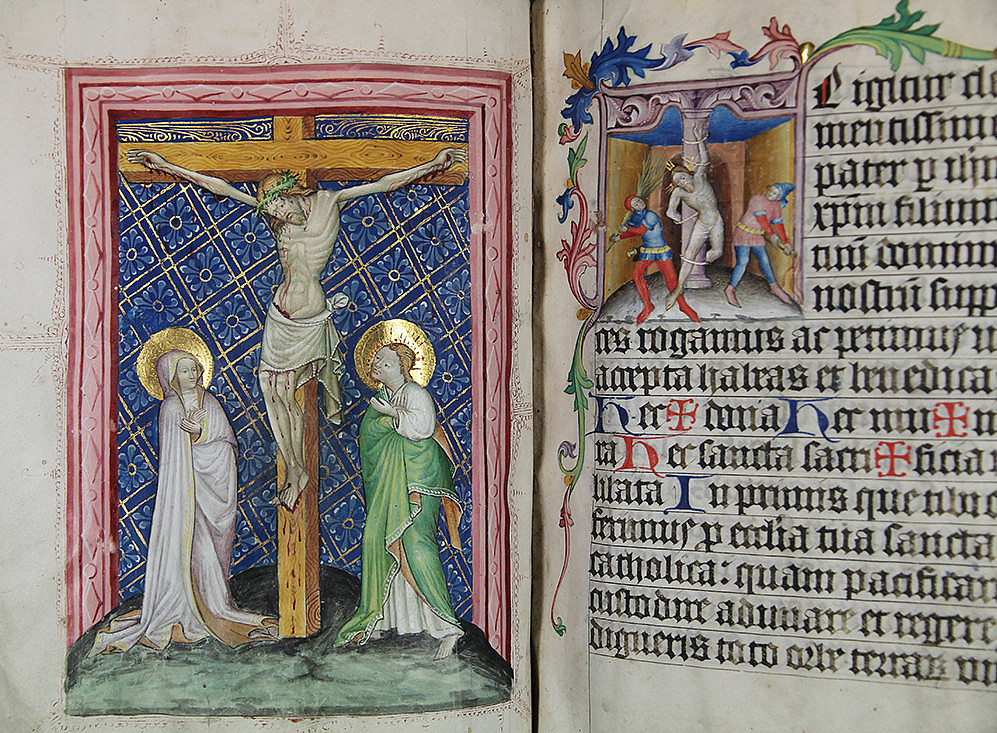 TE igitur cle
mentissim
pater p ihm
xpm filium
tuū domin
nostrū supp
ces rogamus ac petimus u
accepta habeas et benedica
Hec ✠ dona Hec mu ✠ n
ra Hec sancta sacri ✠ ficia
libata In primis que tibi o
ferimus p ecclia tua sancta
catholica: quam pacificar
custodire adunare et regere
digneris toto orbe terraꝝ un